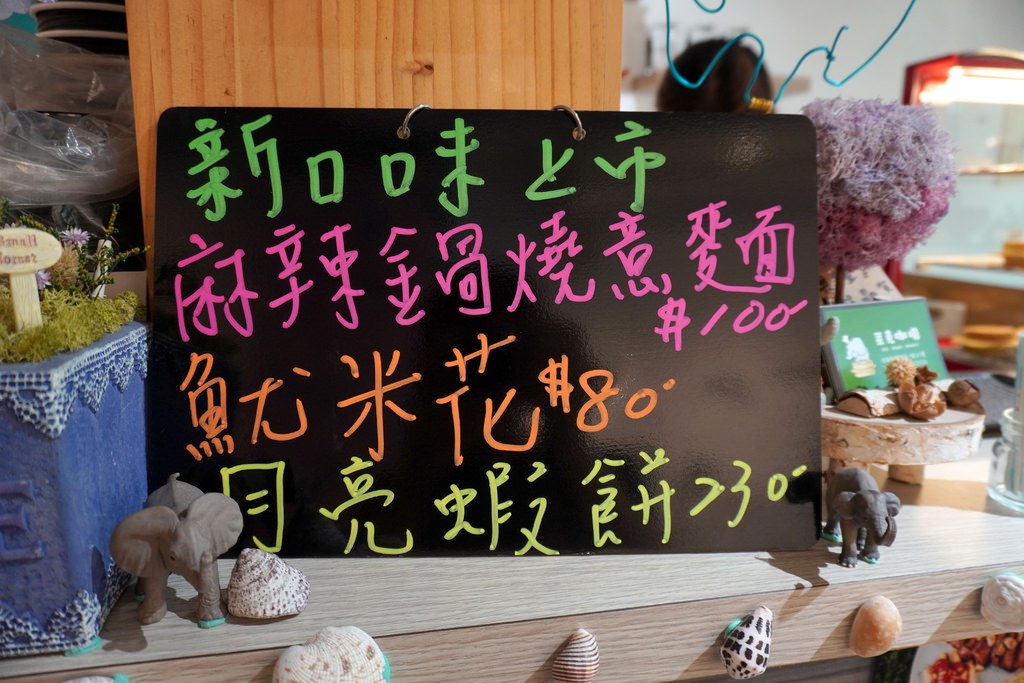 新口味上市
麻辣鍋燒意麵
$100
魷米花$80
月亮蝦餅230
Small
forest